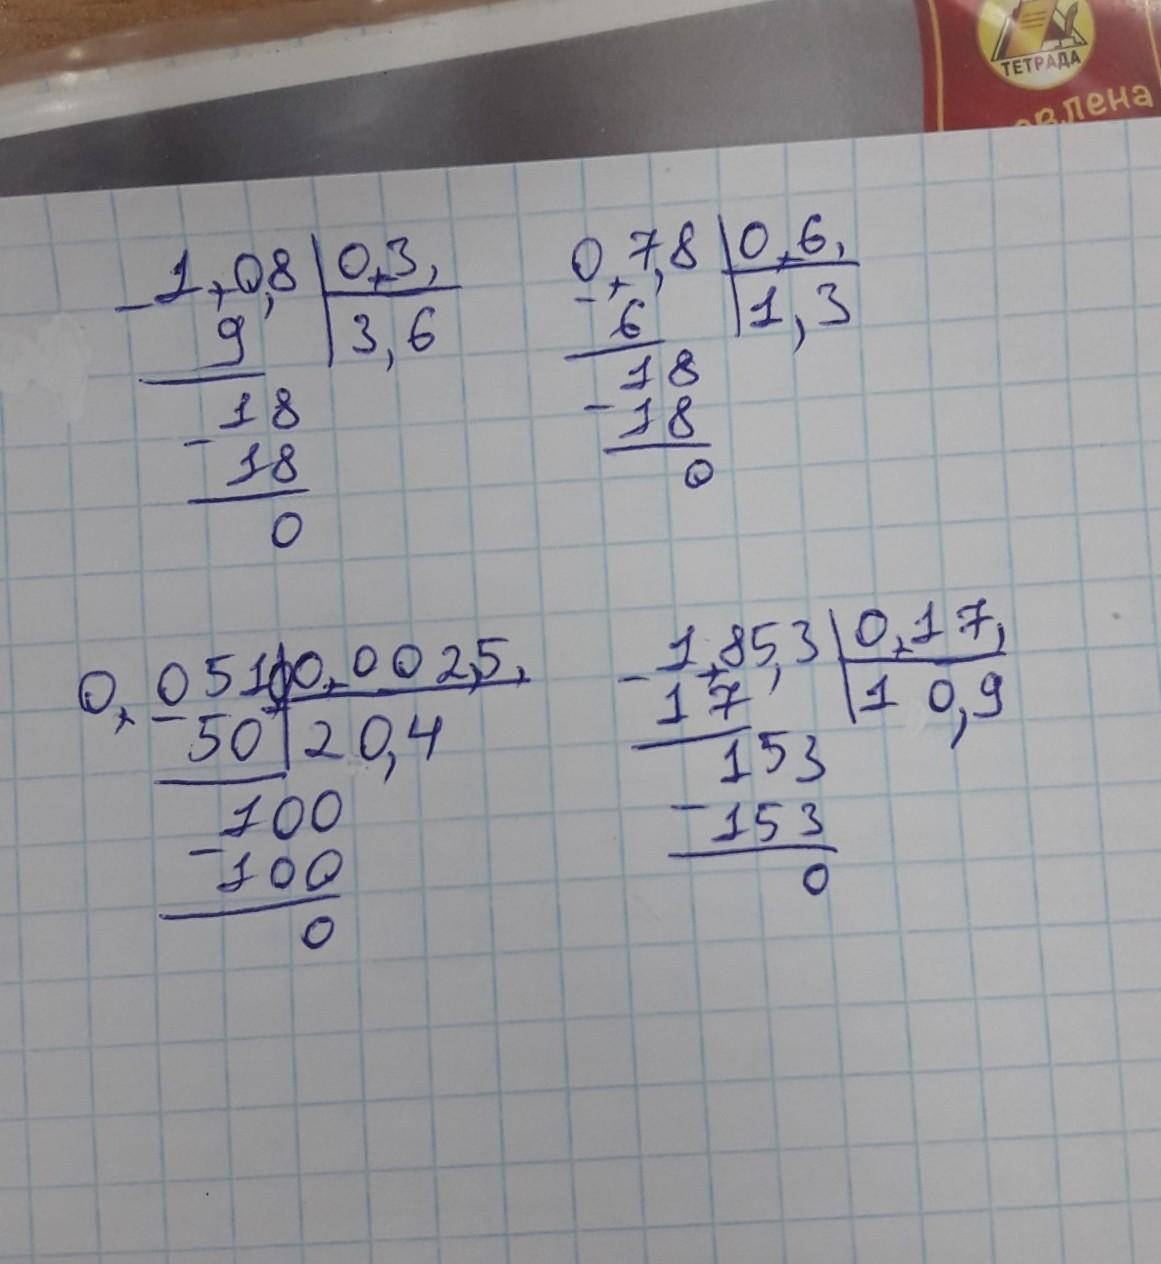 ТЕТРАДА
овлена
1,0,8 | 0,3,
- 9 | 3,6
18
- 18
0
0,7,8 | 0,6,
- 6 | 1,3
18
- 18
0
0,0510 | 0,0025,
- 50 | 20,4
100
- 100
0
1,85,3 | 0,17,
- 17 | 10,9
153
- 153
0